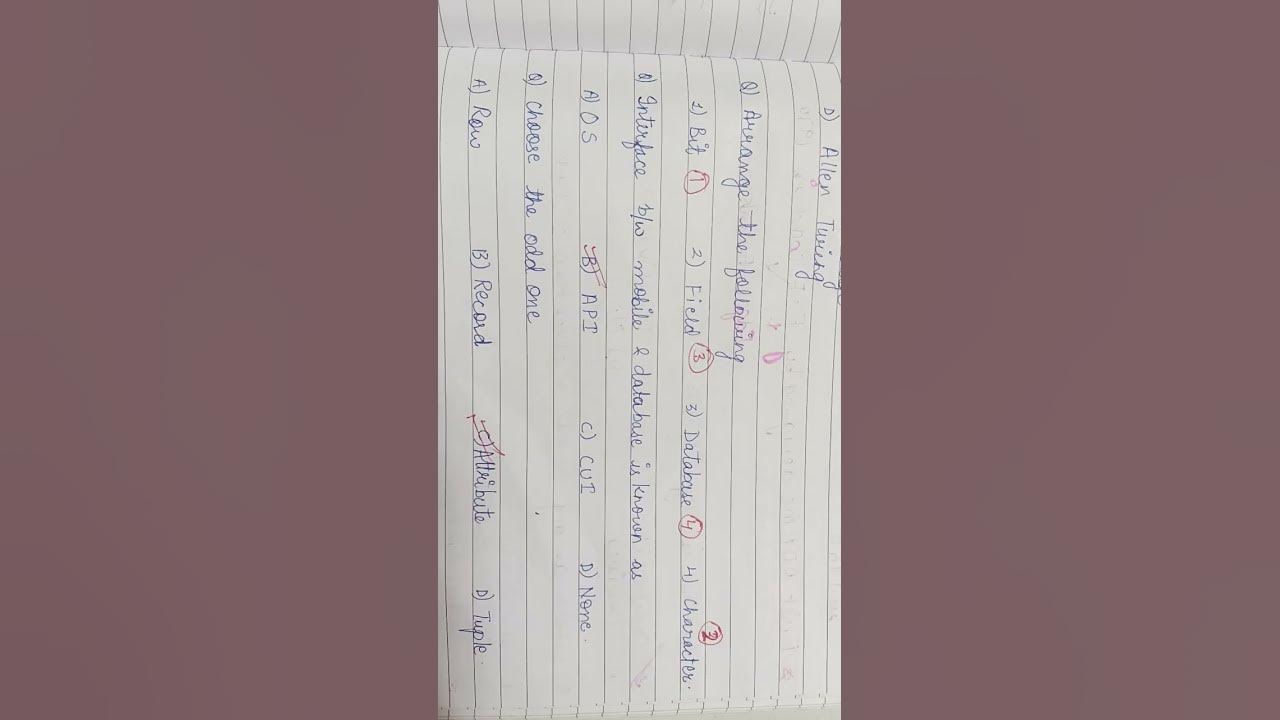 D) Allen Turing
Q) Arrange the following
1) Bit ① 2) Field ③ 3) Database ④ 4) Character. ②
Q) Interface b/w mobile & database is known as
A) OS B) API C) CUI D) None.
Q) Choose the odd one
A) Row B) Record C) Attribute D) Tuple.